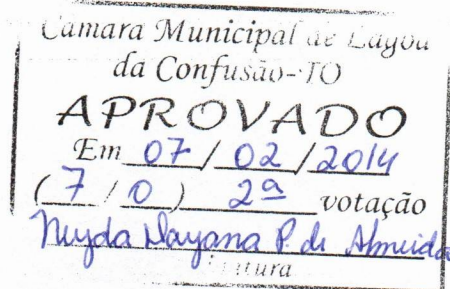 Câmara Municipal de Lagoa
da Confusão-TO
APROVADO
Em 07 / 02 / 2014
( 7 / 0 ) 2ª votação
Dayana P. de Almeida